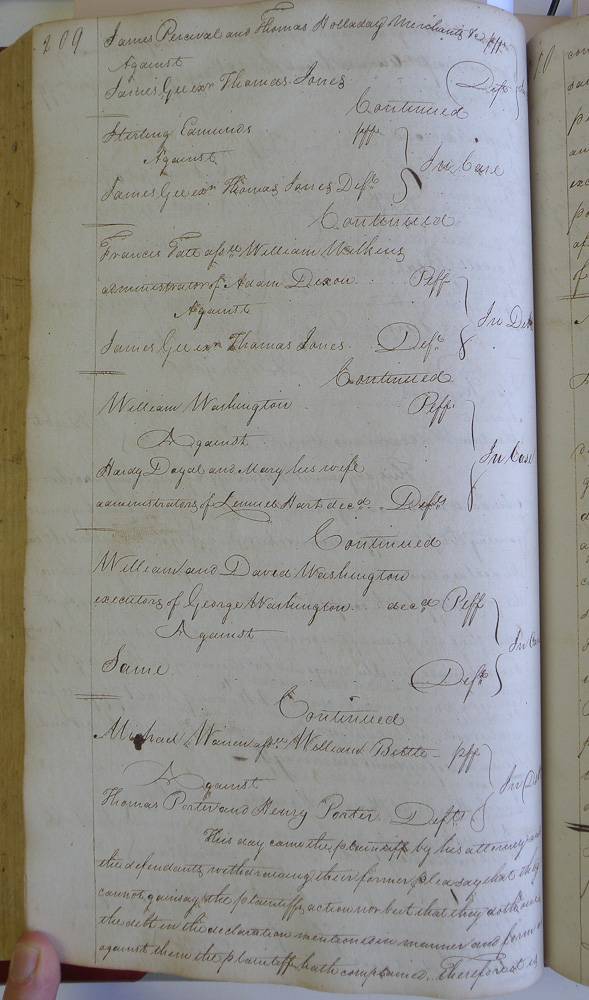 209
James Percival and Thomas Holladay Merchants &c plffs
Against
James Gee exr Thomas Jones Deft
Continued
Sterling Edmunds plff
Against In Case
James Gee exr Thomas Jones Deft
Continued
Francis Tatt assee William Wilkins
administrator of Adam Dixon Plff
Against In Debt
James Gee exr Thomas Jones Deft
Continued
William Washington Plff
Against In Case
Hardy Doyal and Mary his wife
administrators of Lemuel Hart decd Defts
Continued
William and David Washington
executors of George Washington decd Plff
Against In
Same Defts
Continued
Michael Warren assee William Bittle plff
Against In
Thomas Porter and Henry Porter Defts
This day came the plaintiff by his attorney and
the defendants withdrawing their former plea say that they
cannot gainsay the plaintiffs action nor but that they doth owe
the debt in the declaration mentioned in manner and form
against them the plaintiff hath complained, therefore it is